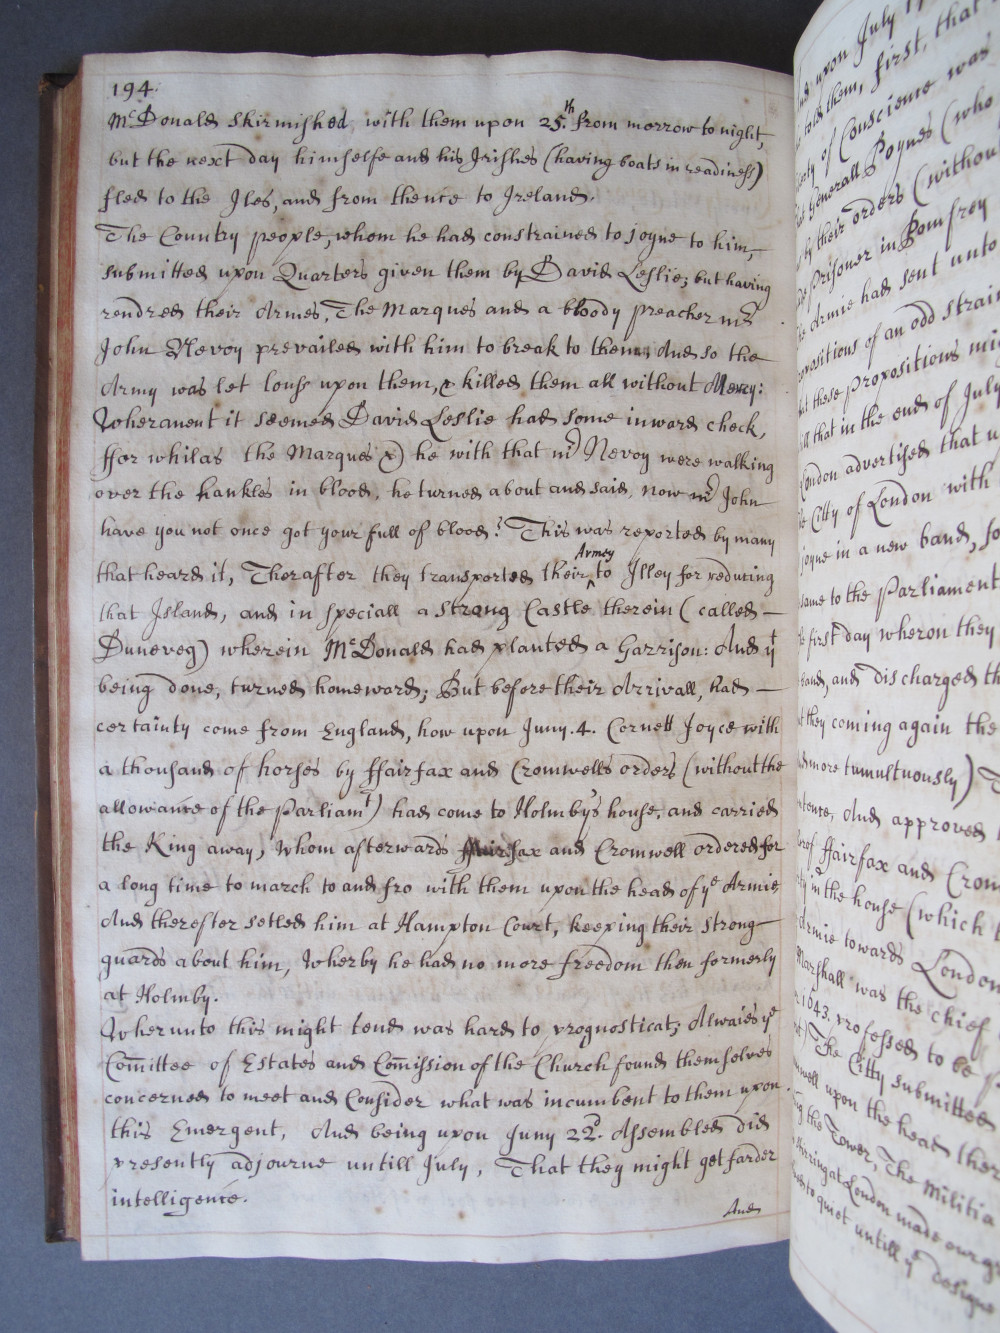 194.
McDonald skirmished with them upon 25th from morrow to night,
but the next day himselfe and his Irishes (having boats in readiness)
fled to the Iles, and from thence to Ireland.
The Country people, whom he had constrained to joyne to him,
submitted upon Quarters given them by David Leslie; but having
rendred their Armes, The Marques and a bloody preacher mr
John Nevoy prevailed with him to break to them, And so the
Army was let louss upon them, & killed them all without Mercy:
Wheranent it seemed David Leslie had some inward check,
ffor whilas the Marques & he with that mr Nevoy were walking
over the hankles in blood, he turned about and said, now mr John
have you not once got your full of blood? This was reported by many
that heard it, Therafter they transported their Armey to Illey for reducing
that Island, and in speciall a strong Castle therein (called
Duneveg) wherein McDonald had planted a Garrison: And yt
being done, turned homeward; But before their Arrivall, had
certainty come from England, how upon Juny. 4. Cornett Joyce with
a thousand of horses by ffairfax and Cromwells orders (without the
allowance of the Parliamt) had come to Holmby's house, and carried
the King away, Whom afterwards ffairfax and Cromwell ordered for
a long time to march to and fro with them upon the head of ye Armie
And therefter setled him at Hampton Court, keeping their strong
guards about him, Wherby he had no more freedom then formerly
at Holmby.
Wherunto this might tend was hard to prognosticat; Alwaies ye
Comittee of Estates and Comission of the Church found themselves
concerned to meet and Consider what was incumbent to them upon
this Emergent, And being upon Juny 22d. Assembled did
presently adjourne untill July, That they might get farder
intelligence.
And
upon July
told them, first, that
of Conscience was
Generall Poynes (who
by their orders (without
Prisoner in Pomfrey
Armie had sent unto
of an odd strain
these Propositions
that in the end of July
London advertised that
Citty of London with
joyne in a new band,
came to the Parliament
first day wheron they
band, and discharged
they coming again the
more tumultuously)
And approved
of ffairfax and
in the house (which
Armie towards London
Marshall was the chief
1643. professed to be
The Citty submitted
upon the head
the Tower, The Militia
at London made our
to quiet untill ye designe